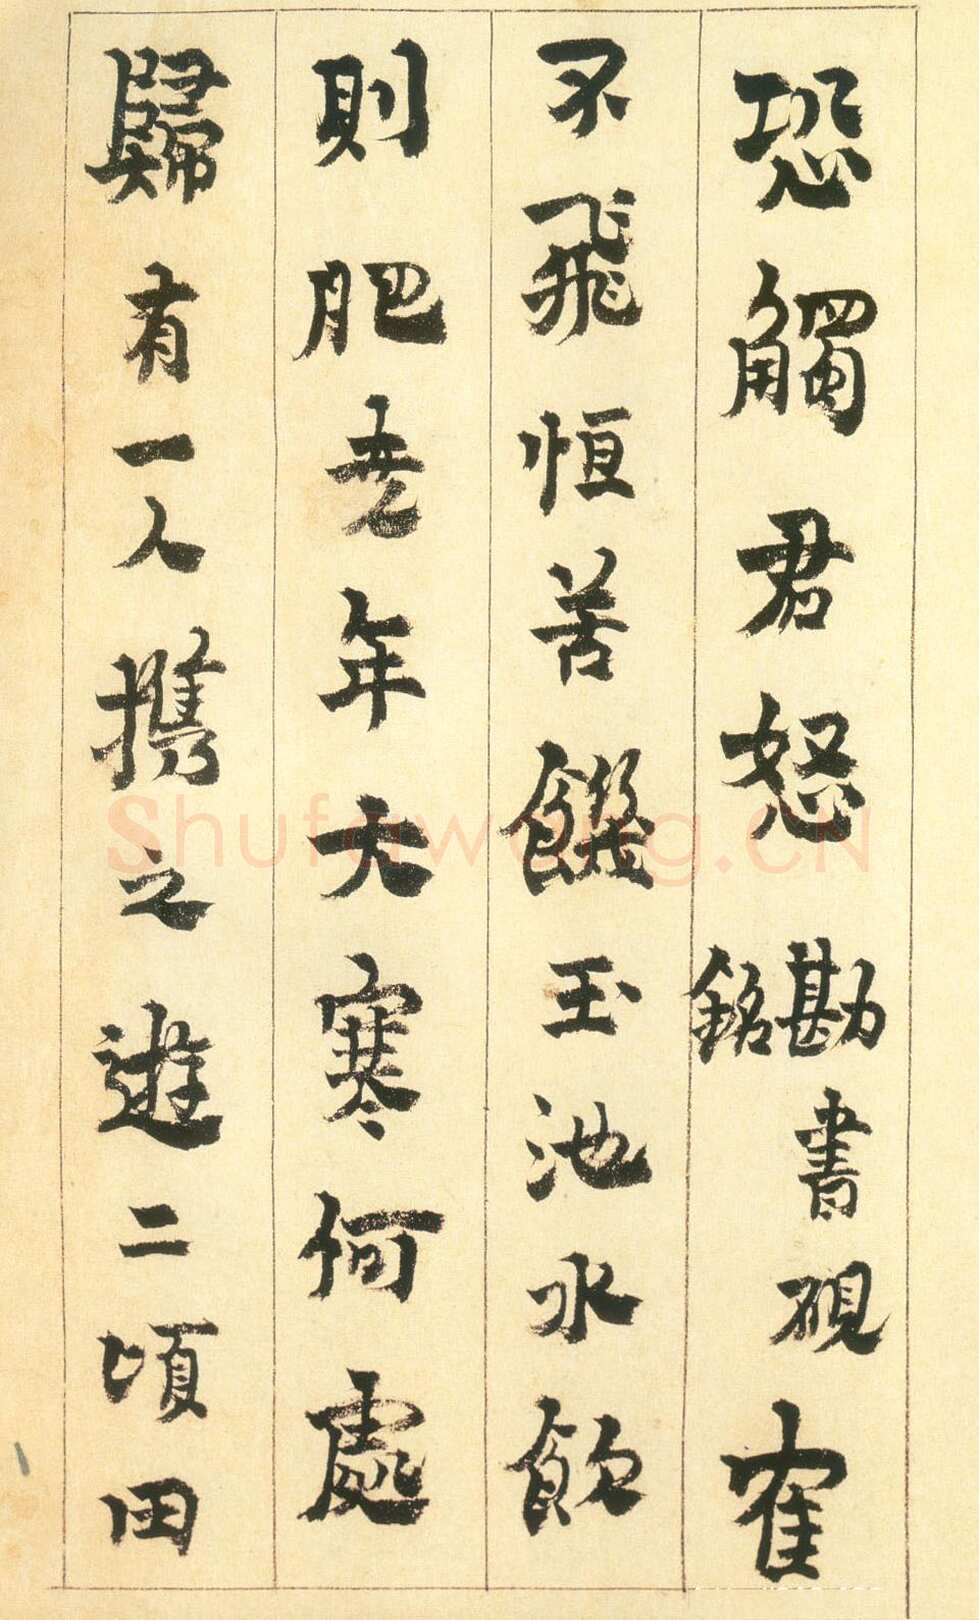 恐觸君怒 勘書硯
銘
寉
不飛恒苦饑玉池水飲
則肥堯年天寒何處
歸有一人攜之遊二頃田
Shufawang.CN